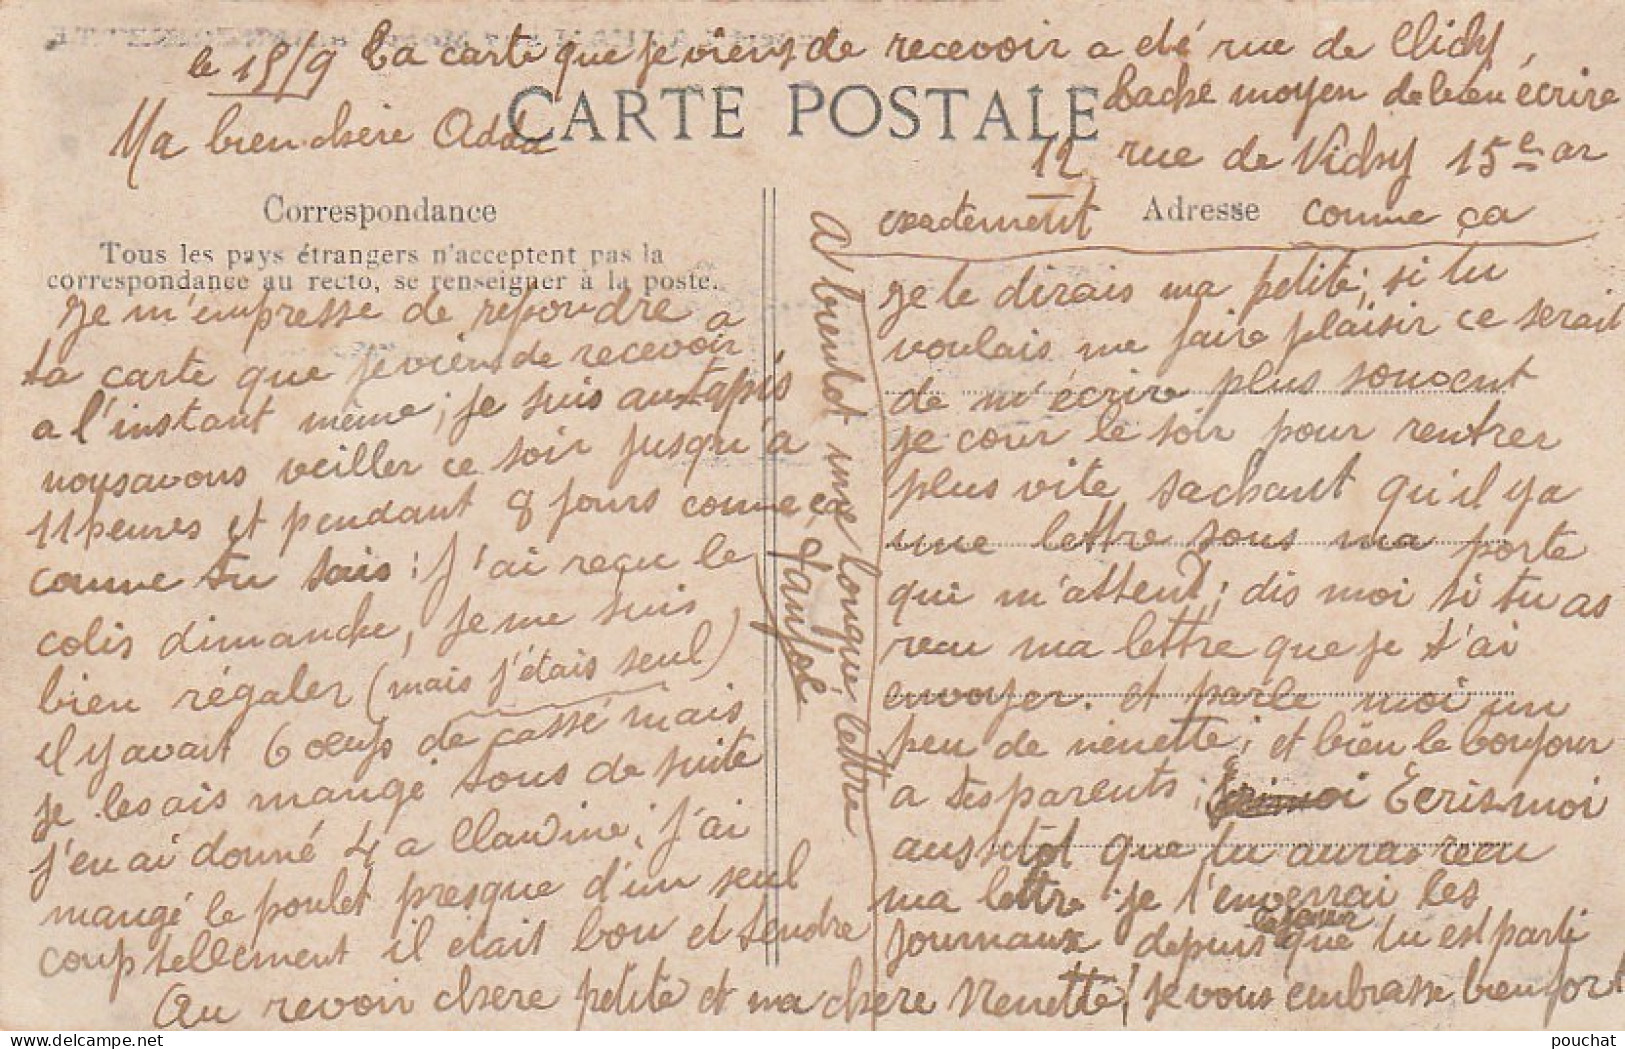 le 15/9 La carte que je viens de recevoir a eté rue de Clichy,
tache moyen de bien écrire
12 rue de Vichy 15e ar
exactement comme ça
CARTE POSTALE
Ma bien chère Adda
Correspondance
Tous les pays étrangers n'acceptent pas la
correspondance au recto, se renseigner à la poste.
Je m'empresse de repondre a
ta carte que je viens de recevoir
a l'instant même; je suis aux tapis
nous avons veiller ce soir jusqu'à
11 heures et pendant 8 jours comme ça
comme tu sais; j'ai reçu le
colis dimanche, je me suis
bien régaler (mais j'étais seul)
il y avait 6 œufs de cassé mais
je les ais mangé tous de suite
j'en ai donné 4 a Claudine; j'ai
mangé le poulet presque d'un seul
coup tellement il etait bon et tendre
Au revoir chere petite et ma chere Nenette! je vous embrasse bien fort
A bientot une longue lettre
Adresse
Je te dirais ma petite, si tu
voulais me faire plaisir ce serait
de m'écrire plus souvent
je cour le soir pour rentrer
plus vite sachant qu'il y a
une lettre sous ma porte
qui m'attend; dis moi si tu as
recu ma lettre que je t'ai
envoyer. et parle moi un
peu de nenette; et bien le bonjour
a tes parents; Ecris moi
aussitôt que tu auras recu
ma lettre je t'enverrai les
journaux depuis le jour que tu est parti
pouchat